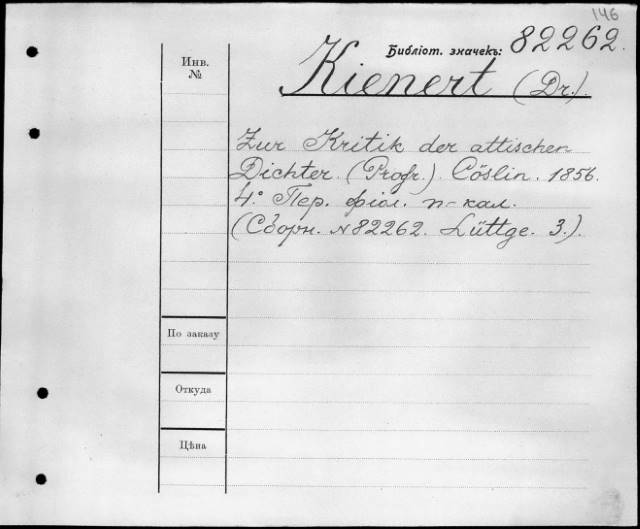 146
Библіот. значекъ: 82262.
Инв.
№
Kienert (Dr.).
Zur Kritik der attischen
Dichter. (Progr.). Cöslin. 1856.
4.° Пер. фіол. п-кал.
(Сборн. №82262. Lüttge. 3.).
По заказу
Откуда
Цѣна